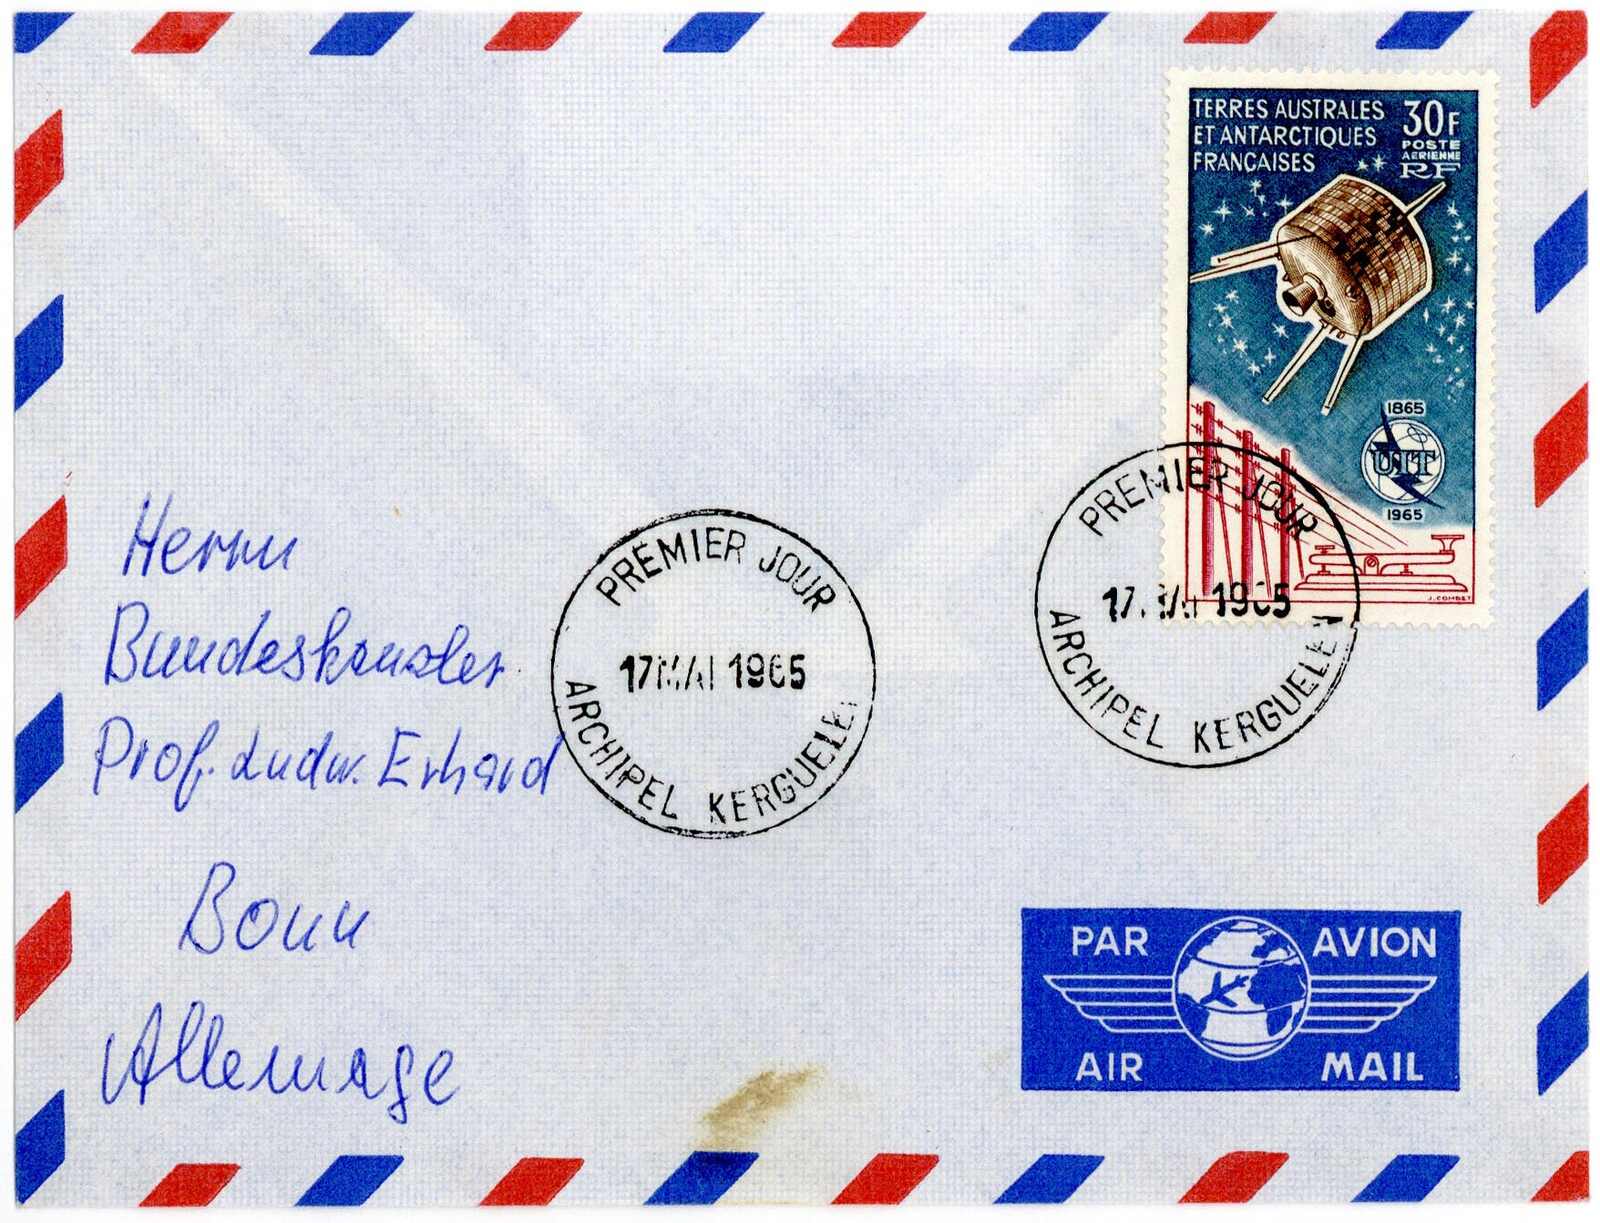 TERRES AUSTRALES
ET ANTARCTIQUES
FRANÇAISES
30F
POSTE
AERIENNE
RF
1865
UIT
1965
J. COMBET
PREMIER JOUR
17. MAI 1965
ARCHIPEL KERGUELEN
PREMIER JOUR
17 MAI 1965
ARCHIPEL KERGUELEN
Herrn
Bundeskanzler
Prof. Ludw. Erhard
Bonn
Allemage
PAR AVION
AIR MAIL